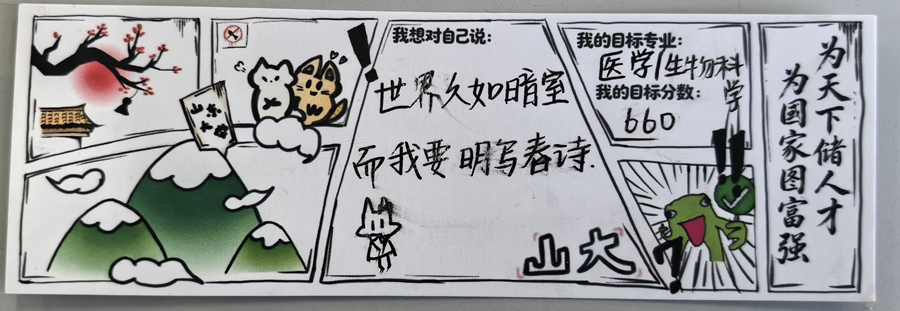 山东
大学
我想对自己说:
世界久如暗室
而我要明写春诗.
山大
我的目标专业:
医学/生物科学
我的目标分数:
660
为天下储人才
为国家图富强